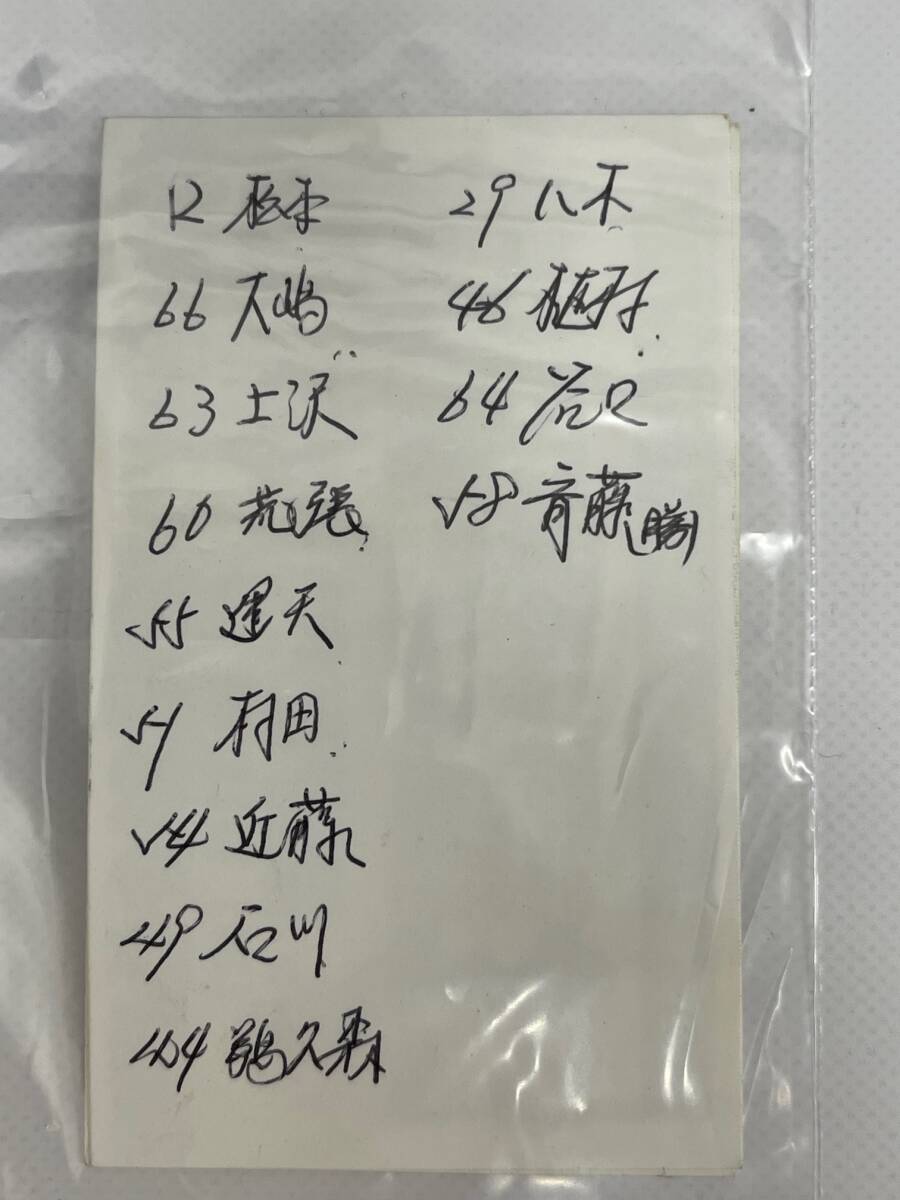 12 松本
66 大嶋
63 上沢
60 荒張
55 運天
51 村田
54 近藤
49 石川
44 鵜久森
29 八木
46 植村
64 谷口
58 斉藤(勝)